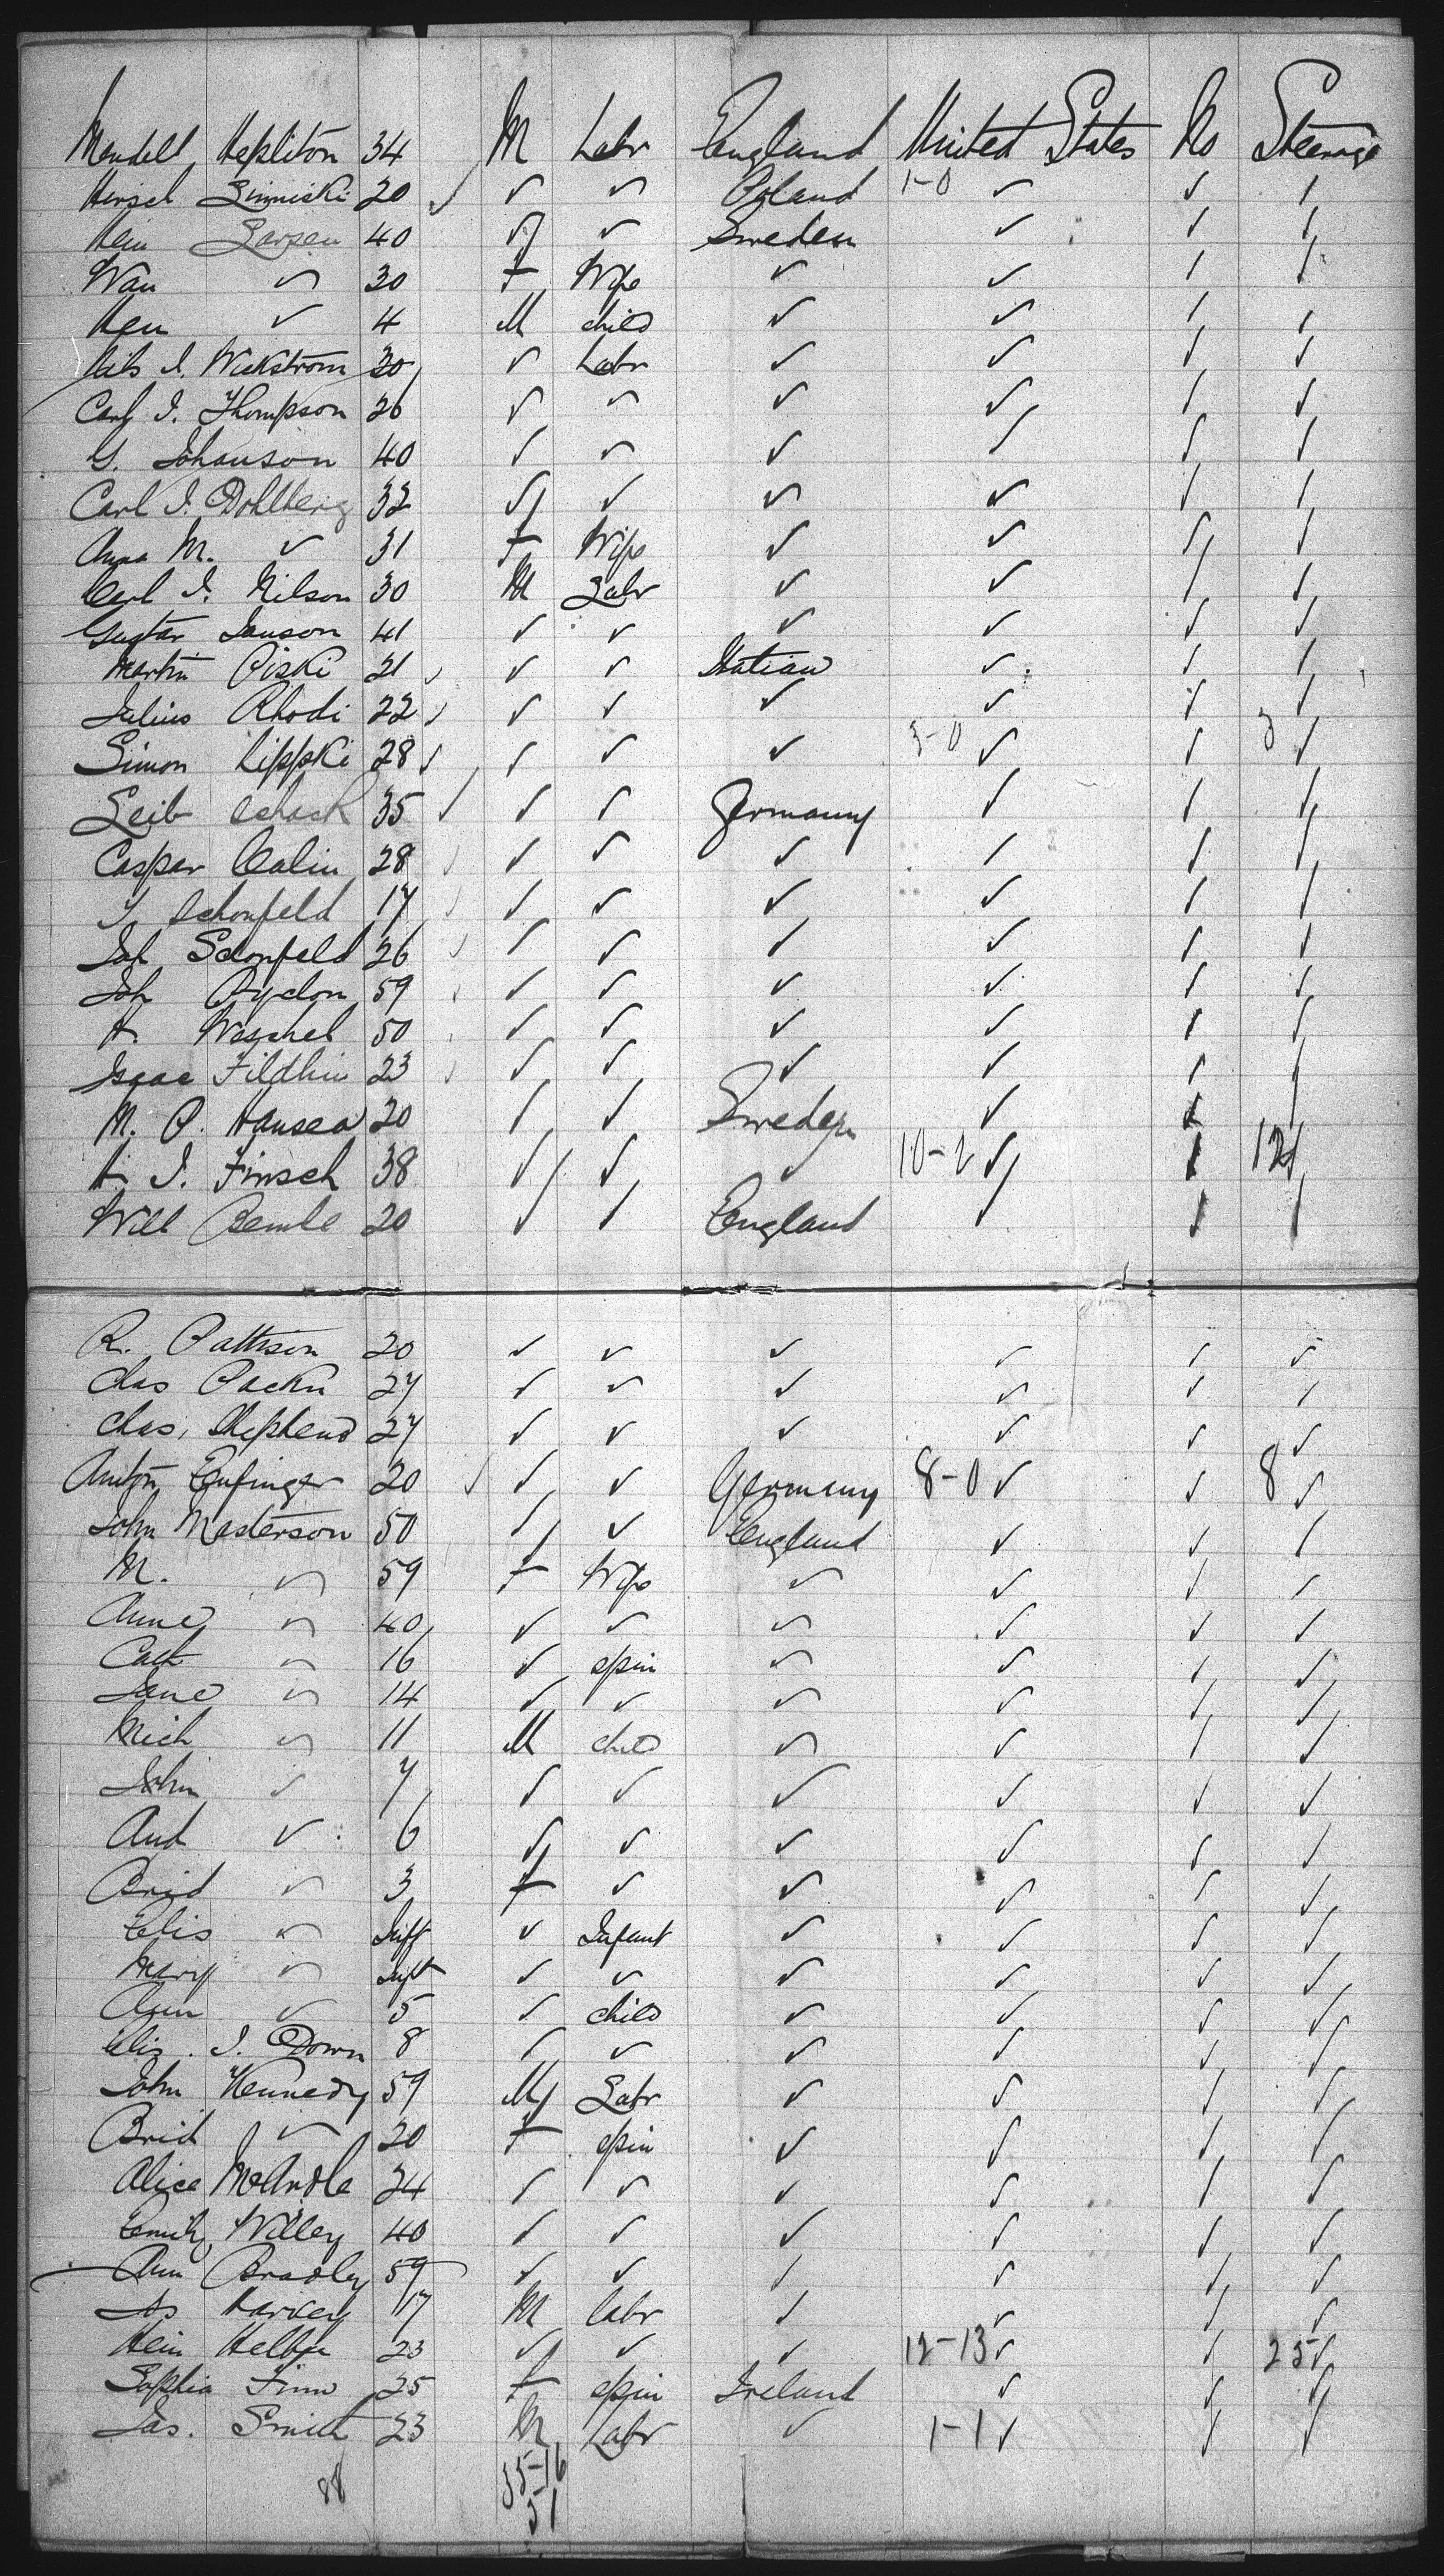 Mendell Hepliton 34 M Labr England United States No Steerage
Hirsch 20 ✓ ✓ ✓ Poland 1-0 ✓ ✓ ✓
Hein Larsen 40 ✓ ✓ Sweden ✓ ✓ ✓
Wan ✓ 30 F Wife ✓ ✓ ✓ ✓
Hen ✓ 4 M child ✓ ✓ ✓ ✓
Nils I. Wickstrom 30 ✓ Labr ✓ ✓ ✓ ✓
Carl I. Thompson 26 ✓ ✓ ✓ ✓ ✓ ✓
G. Johanson 40 ✓ ✓ ✓ ✓ ✓ ✓
Carl I. Dohlberg 32 ✓ ✓ ✓ ✓ ✓ ✓
Anna M. ✓ 31 F Wife ✓ ✓ ✓ ✓
Carl I. Nilson 30 M Labr ✓ ✓ ✓ ✓
Gustav Janson 41 ✓ ✓ ✓ ✓ ✓ ✓
Martin Piski 21 ✓ ✓ ✓ Italian ✓ ✓ ✓
Julius Rhodi 22 ✓ ✓ ✓ ✓ ✓ ✓ ✓
Simon Lippski 28 ✓ ✓ ✓ ✓ 3-0 ✓ ✓ 3 ✓
Leib Schack 35 ✓ ✓ ✓ Germany ✓ ✓ ✓
Caspar Calin 28 ✓ ✓ ✓ ✓ ✓ ✓ ✓
Schonfeld 17 ✓ ✓ ✓ ✓ ✓ ✓ ✓
Joh Schonfeld 26 ✓ ✓ ✓ ✓ ✓ ✓ ✓
Joh Pydon 59 ✓ ✓ ✓ ✓ ✓ ✓
A. Weschel 50 ✓ ✓ ✓ ✓ ✓ ✓
Isaac Fildhin 23 ✓ ✓ ✓ ✓ ✓ ✓ ✓
M. P. Hansen 20 ✓ ✓ Sweden ✓ ✓ ✓
I. Finsch 38 ✓ ✓ ✓ 10-2 ✓ ✓ 12 ✓
Will Bemle 20 ✓ ✓ England ✓ ✓ ✓
R. Pattison 20 ✓ ✓ ✓ ✓ ✓ ✓
Chas Packn 27 ✓ ✓ ✓ ✓ ✓ ✓
Chas. Shephend 27 ✓ ✓ ✓ ✓ ✓ ✓
Anton Enfinger 20 ✓ ✓ ✓ Germany 8-0 ✓ ✓ 8 ✓
John Masterson 50 ✓ ✓ England ✓ ✓ ✓
M. ✓ 59 F Wife ✓ ✓ ✓ ✓
Anne ✓ 40 ✓ ✓ ✓ ✓ ✓ ✓
Cath ✓ 16 ✓ spin ✓ ✓ ✓ ✓
Jane ✓ 14 ✓ ✓ ✓ ✓ ✓ ✓
Mich ✓ 11 M child ✓ ✓ ✓ ✓
John ✓ 7 ✓ ✓ ✓ ✓ ✓ ✓
And ✓ 6 ✓ ✓ ✓ ✓ ✓ ✓
Brid ✓ 3 F ✓ ✓ ✓ ✓ ✓
Elis ✓ Inft ✓ Infant ✓ ✓ ✓ ✓
Mary ✓ Inft ✓ ✓ ✓ ✓ ✓ ✓
Ann ✓ 5 ✓ child ✓ ✓ ✓ ✓
Elis. I. Down 8 ✓ ✓ ✓ ✓ ✓ ✓
John Kennedy 59 M Labr ✓ ✓ ✓ ✓
Brid ✓ 20 F spin ✓ ✓ ✓ ✓
Alice McArdle 24 ✓ ✓ ✓ ✓ ✓ ✓
Emily Willey 40 ✓ ✓ ✓ ✓ ✓ ✓
Ann Bradley 59 ✓ ✓ ✓ ✓ ✓ ✓
Js Harvey 17 M labr ✓ ✓ ✓ ✓
Hein Helbn 23 ✓ ✓ ✓ 12-13 ✓ ✓ 25 ✓
Sophia Finn 25 F spin Ireland ✓ ✓ ✓
Jas. Smith 23 M Labr ✓ 1-1 ✓ ✓ ✓
88 35-16
51